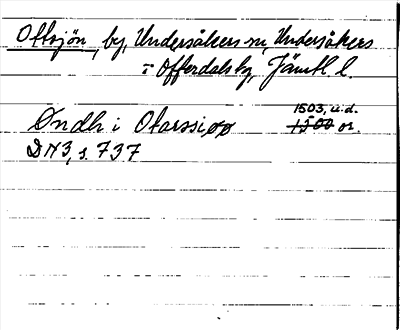 Ottsjön, by, Undersåkers sn, Undersåkers
o Offerdals tg, Jämtl l.
1503, u.d.
Øndh i Otarssiøø 1500 or.
DN3, s. 737